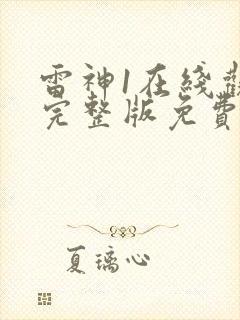 雷神1在綫觀
完整版免費
夏璃心